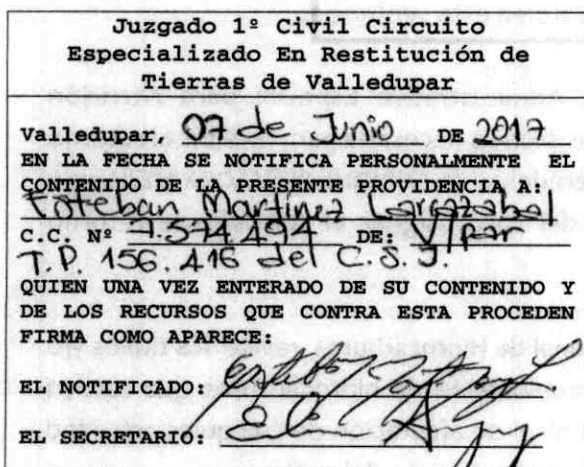 Juzgado 1º Civil Circuito
Especializado En Restitución de
Tierras de Valledupar
Valledupar, 07 de Junio DE 2017
EN LA FECHA SE NOTIFICA PERSONALMENTE EL
CONTENIDO DE LA PRESENTE PROVIDENCIA A:
Esteban Martínez Larrazabal
C.C. Nº 7.574.494 DE: V/par
T.P. 156.416 del C.S.J.
QUIEN UNA VEZ ENTERADO DE SU CONTENIDO Y
DE LOS RECURSOS QUE CONTRA ESTA PROCEDEN
FIRMA COMO APARECE:
EL NOTIFICADO:
EL SECRETARIO: